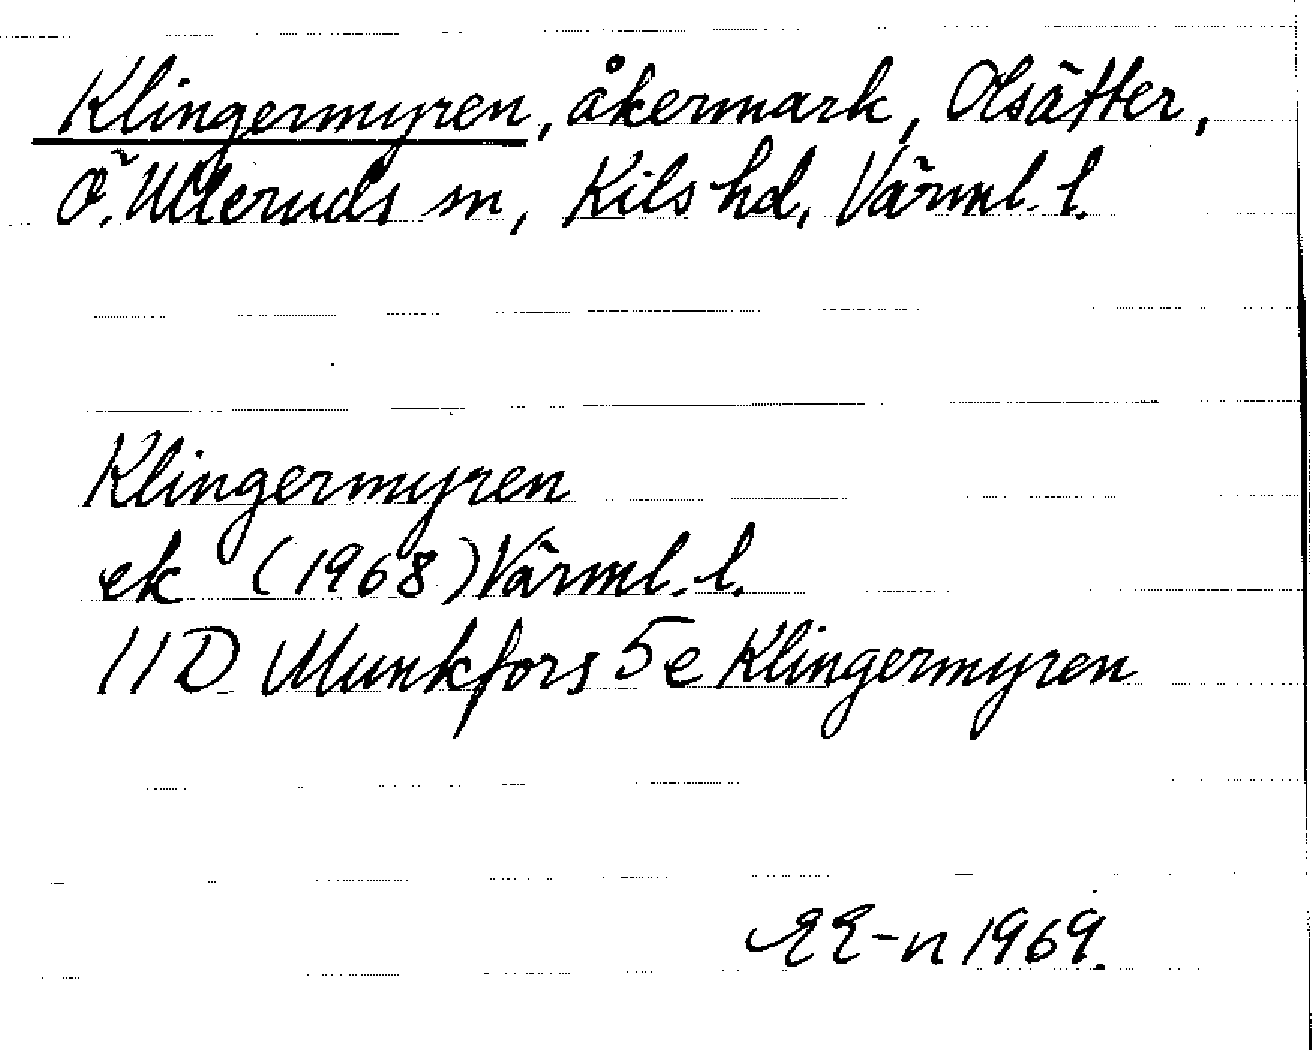 Klingermyren, åkermark, Olsätter,
Ö. Ulleruds sn, Kils hd, Värml. l.
Klingermyren
ek (1968) Värml. l.
11D Munkfors 5e Klingermyren
EE-n 1969.